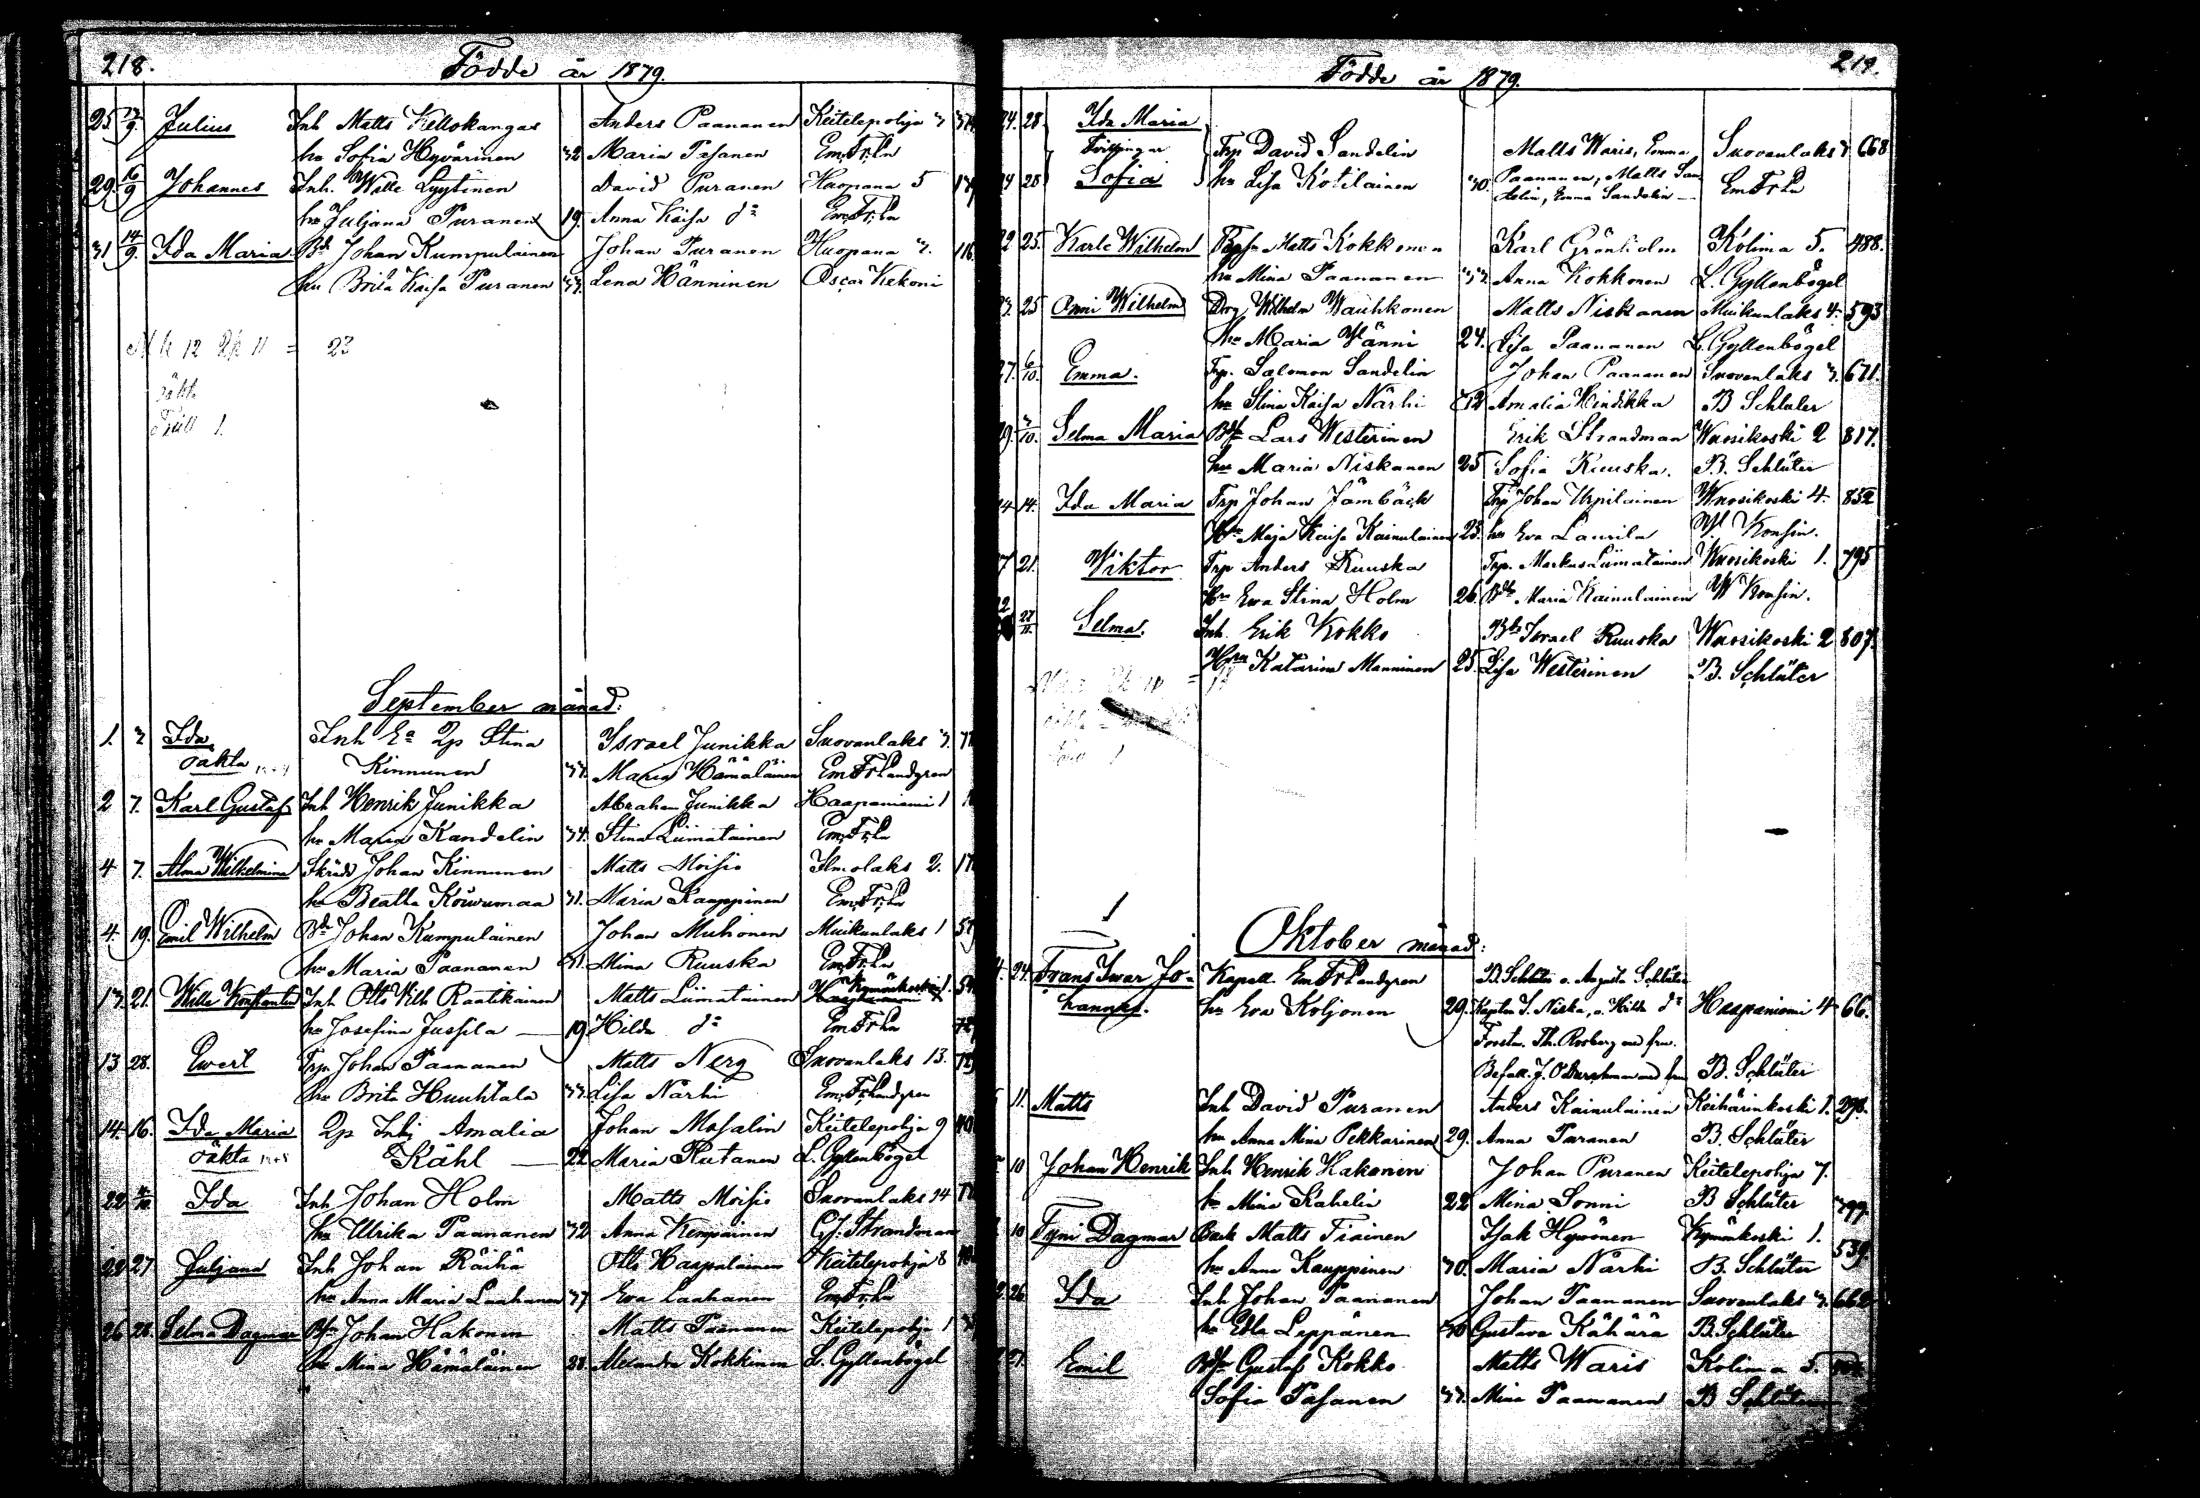 218.
Födde år 1879.
25 9. Julius Inh Matts Kellokangas Anders Paananen Keitelepohja
hu Sofia Hyvärinen 32 Maria Pasanen Em. Fr. Ln
29. 16/9 Johannes Inh. Wille Lyytinen David Puranen Huopana 5
hu Juljana Puranen 19. Anna Kaisa do Em. Fr. Ln
31 14/9. Ida Maria Bd. Johan Kumpulainen Johan Puranen Huopana 3. 116
hu Brita Kaisa Puranen 33. Lena Hänninen Oscar Kekoni
Mk 12 Qk 11 = 23
oäkta
Tvill 1.
September månad:
1. 3 Ida Inh Ea Qp Stina Israel Junikka Suovanlaks 3.
oäkta Kinnunen 33. Maria Hämäläinen Em Fr Landgren
2 7. Karl Gustaf Inh Henrik Junikka Abraham Junikka Haapaniemi 1
hu Maria Kandelin 34. Stina Liimatainen Em. Fr. Ln
4 7. Alma Wilhelmina Skrädd Johan Kinnunen Matts Moisio Ilmolaks 2.
hu Beatta Kouvumaa 31. Maria Kauppinen Em. Fr. Ln
4. 19. Emil Wilhelm Bd. Johan Kumpulainen Johan Muhonen Muikunlaks 1
hu Maria Paananen 31. Mina Ruuska Em. Fr. Ln
13. 21. Wille Konstantin Inh Otto Wilh Raatikainen Matts Liimatainen Kymönkoski 1.
hu Josefina Jussila 19 Hilda do Em Fr Ln
13 28. Evert Trp. Johan Paananen Matts Nerg Suovanlaks 13.
hu Brita Huuhtala 33. Lisa Närhi Em. Fr. Landgren
14. 16. Ida Maria Qp Inhj Amalia Johan Mosalin Keitelepohja 9
oäkta Kähl 22 Maria Rutanen L. Gyllenbögel
22 4/10. Ida Inh Johan Holm Matts Moisio Suovanlaks 24
hu Ulrika Paananen 32 Anna Kemppainen C. J. Strandman
22 27 Juljana Inh Johan Räihä Otto Haapalainen Keitelepohja 8
hu Anna Maria Laahanen 37 Eva Laahanen Em. Fr. Ln
26 28. Selma Dagmar Johan Hakonen Matts Paananen Keitelepohja 1
hu Mina Hämäläinen 28. Alexandra Kokkinen L. Gyllenbögel
219.
Födde år 1879.
24. 28 Ida Maria
Tvillingar Trp David Sandelin Matts Waris, Emma Suovanlaks 3 668
24 28 Sofia hu Lisa Kotilainen 30. Paananen, Matts San Em Fr Ln
delin, Emma Sandelin
22 25. Karle Wilhelm Matts Kokkonen Karl Grönholm Kolima 5. 488.
hu Mina Paananen 32. Anna Kokkonen L. Gyllenbögel
25 Onni Wilhelm Drg Wilhelm Wauhkonen Matts Niskanen Muikunlaks 4. 593
hu Maria Wänni 24. Lisa Paananen L. Gyllenbögel
27. 6/10. Emma. Trp. Salomon Sandelin Johan Paananen Suovanlaks 3. 671.
hu Stina Kaisa Närhi 42 Amalia Hindikka B Schluter
3/10. Selma Maria Lars Westerinen Erik Strandman Wuosikoski 2 817.
hu Maria Niskanen 25 Sofia Ruuska. B. Schlüter
14. Ida Maria Trp Johan Jämbäck Trp Johan Urpilainen Wuosikoski 4. 852
Hu Maja Kaisa Kainulainen 23. hu Eva Laurila W Konsin.
21. Wiktor Trp Anders Ruuska Trp. Markus Liimatainen Wuosikoski 1. 795
Hu Eva Stina Holm 26 Maria Kainulainen W Konsin.
22 Selma. Inh Erik Kokko Israel Ruuska Wuosikoski 2 807.
Katarina Manninen 25. Lisa Westerinen B. Schlüter
Oktober månad:
4. 24. Frans Iwar Jo- Kapell. Em Fr Landgren B. Schlüter o. Augusta Schlüter
hannes. hu Eva Koljonen 29. Kapten J. Niska, o. Hilda do Haapaniemi 4 66.
Forstm. Th. Rosberg med fru.
B. Schlüter
11. Matts Inh David Puranen Anders Kainulainen Keihärinkoski 1. 298.
hu Anna Mina Pekkarinen 29. Anna Puranen B. Schlüter
10 Johan Henrik Inh Henrik Hakonen Johan Puranen Keitelepohja 7.
hu Mina Kahelin 22 Mina Sonni B Schlüter 399.
10 Tyni Dagmar Back Matts Tiainen Isak Hyvönen Kymönkoski 1.
hu Anna Kauppinen 30. Maria Närhi B. Schlüter 539.
26. Ida Inh Johan Paananen Johan Paananen Suovanlaks 3. 662
hu Edla Leppänen 40 Gustava Kähärä B. Schlüter
27. Emil Gustaf Kokko Matts Waris Kolima 5.
Sofia Pasanen 33. Mina Paananen B Schlüter